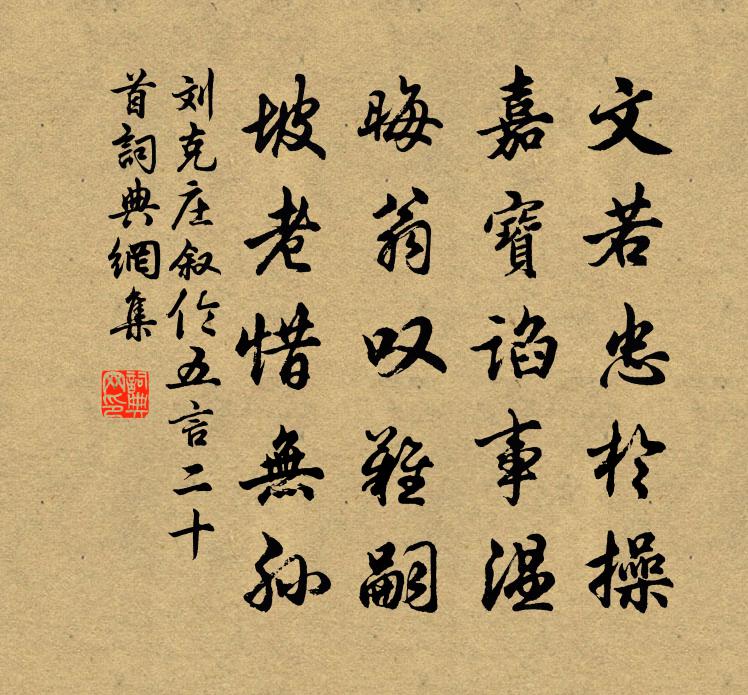 文若忠於操
嘉寶谄事温
晦翁叹難嗣
坡老惜無孫
刘克庄叙伦五言二十
首詞典網集
詞典網印